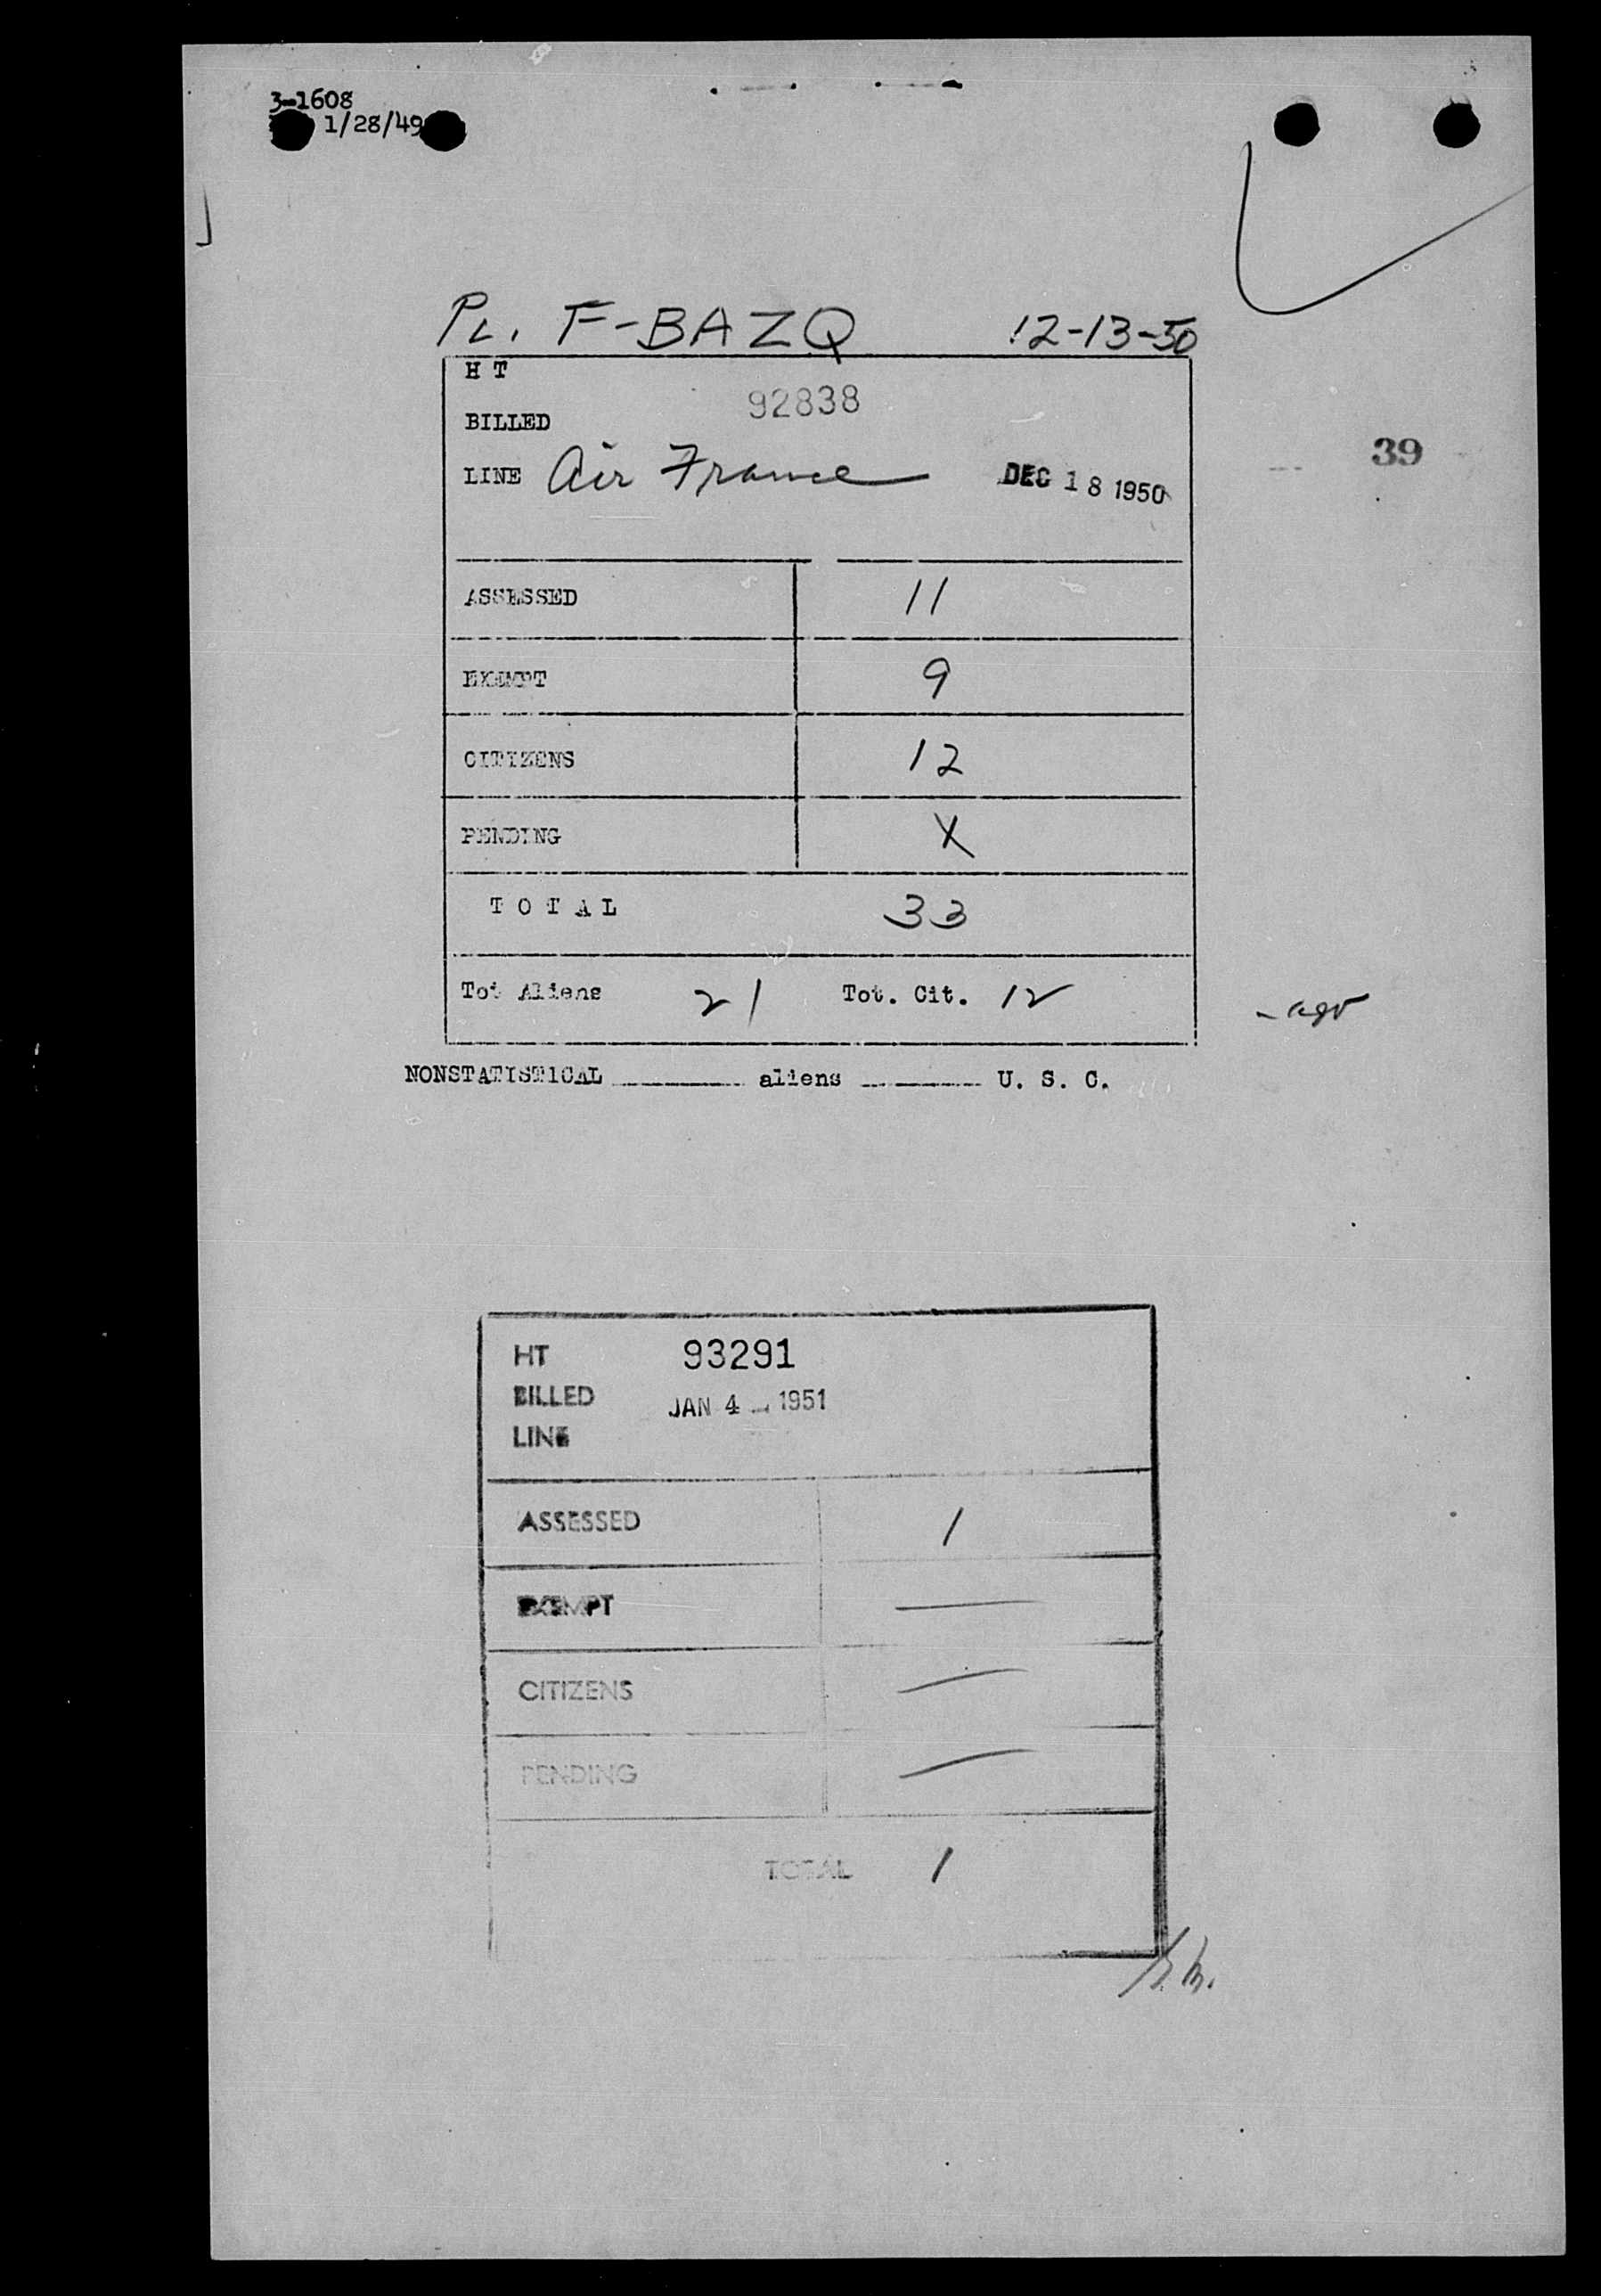 3-1608
1/28/49
PL. F-BAZQ 12-13-50
H T
92838
BILLED
39
LINE Air France DEC 18 1950
ASSESSED 11
EXEMPT 9
CITIZENS 12
PENDING X
T O T A L 33
Tot Aliens 21 Tot. Cit. 12
NONSTATISTICAL aliens U. S. C.
HT 93291
BILLED JAN 4 - 1951
LINE
ASSESSED 1
EXEMPT —
CITIZENS —
PENDING —
TOTAL 1